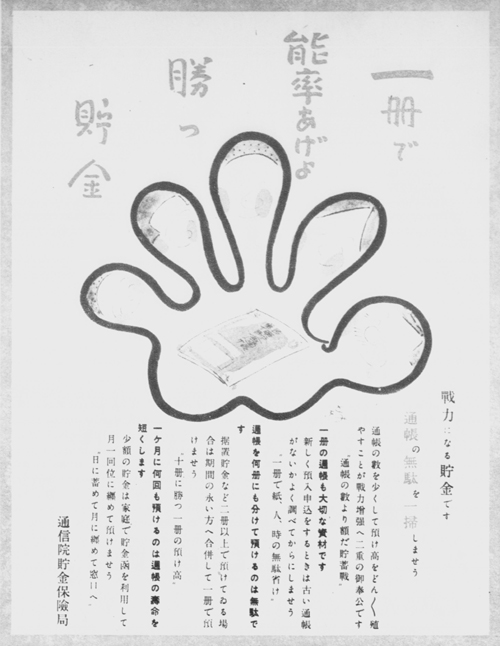 一册で
能率あげよ
勝つ
貯金
戰力になる貯金です
通帳の無駄を一掃しませう
通帳の數を少くして預け高をどん〱殖
やすことが戰力增强へ二重の御奉公です
"通帳の數より額だ貯蓄戰"
一册の通帳も大切な資材です
新しく預入申込をするときは古い通帳
がないかよく調べてからにしませう
"一册で紙、人、時の無駄省け"
通帳を何册にも分けて預けるのは無駄で
す
据置貯金など二册以上で預けてゐる場
合は期間の永い方へ合併して一册で預
けませう
"十册に勝つ一册の預け高"
一ケ月に何回も預けるのは通帳の壽命を
短くします
少額の貯金は家庭で貯金函を利用して
月一回位に纒めて預けませう
"日に蓄めて月に纒めて窓口へ"
通信院貯金保險局